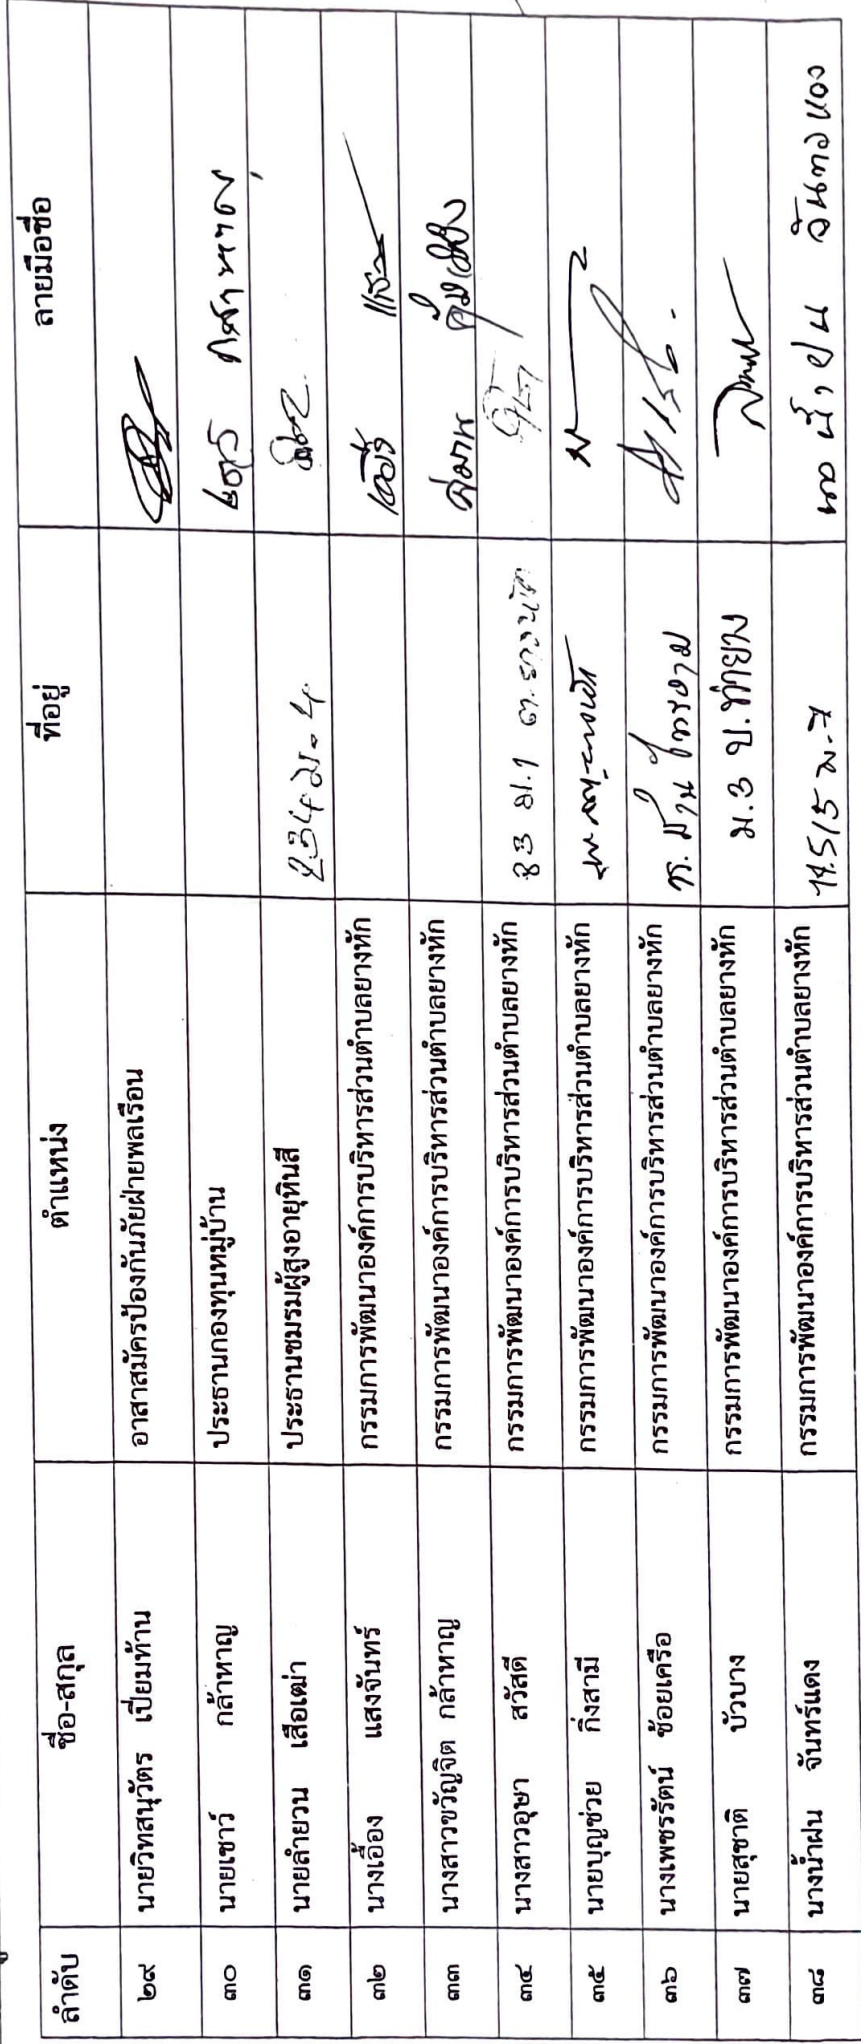 ลำดับ ชื่อ-สกุล ตำแหน่ง ที่อยู่ ลายมือชื่อ
๒๙ นายวิทสนุวัตร เปียมท้าน อาสาสมัครป้องกันภัยฝ่ายพลเรือน
๓๐ นายเชาว์ กล้าหาญ ประธานกองทุนหมู่บ้าน
๓๑ นายลำยวน เสือเฒ่า ประธานชมรมผู้สูงอายุหินสี 234 ม.4
๓๒ นางเอื้อง แสงจันทร์ กรรมการพัฒนาองค์การบริหารส่วนตำบลยางหัก เอื้อง
๓๓ นางสาวขวัญจิต กล้าหาญ กรรมการพัฒนาองค์การบริหารส่วนตำบลยางหัก
๓๔ นางสาวอุษา สวัสดี กรรมการพัฒนาองค์การบริหารส่วนตำบลยางหัก 83 ม.1 ต.ยางหัก
๓๕ นายบุญช่วย กิ่งสามี กรรมการพัฒนาองค์การบริหารส่วนตำบลยางหัก
๓๖ นางเพชรรัตน์ ช้อยเครือ กรรมการพัฒนาองค์การบริหารส่วนตำบลยางหัก บ้านไทรงาม
๓๗ นายสุชาติ บัวบาง กรรมการพัฒนาองค์การบริหารส่วนตำบลยางหัก ม.3 บ.ท่ายาง
๓๘ นางน้ำฝน จันทร์แดง กรรมการพัฒนาองค์การบริหารส่วนตำบลยางหัก 145/5 ม.7 น้ำฝน จันทร์แดง